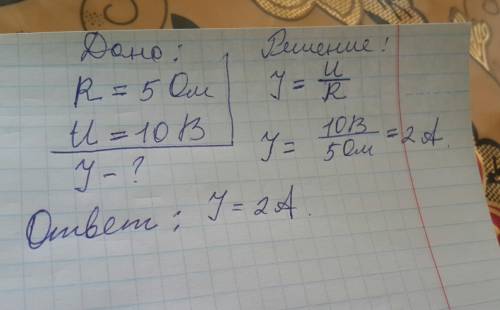 Дано:
R = 5 Ом
U = 10 В
J - ?
Решение:
J = U/R
J = 10В/5Ом = 2 А.
Ответ: J = 2 А.